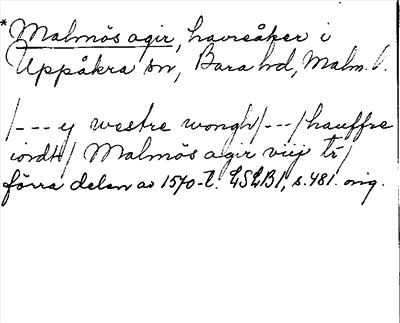 *Malmös agir, havreåker i
Uppåkra sn, Bara hd, Malm. l.
/--- y westre wongh/---/hauffre
iordt/ Malmös agir viij tr/
förra delen av 1570-t. LSLB1, s. 481. orig.